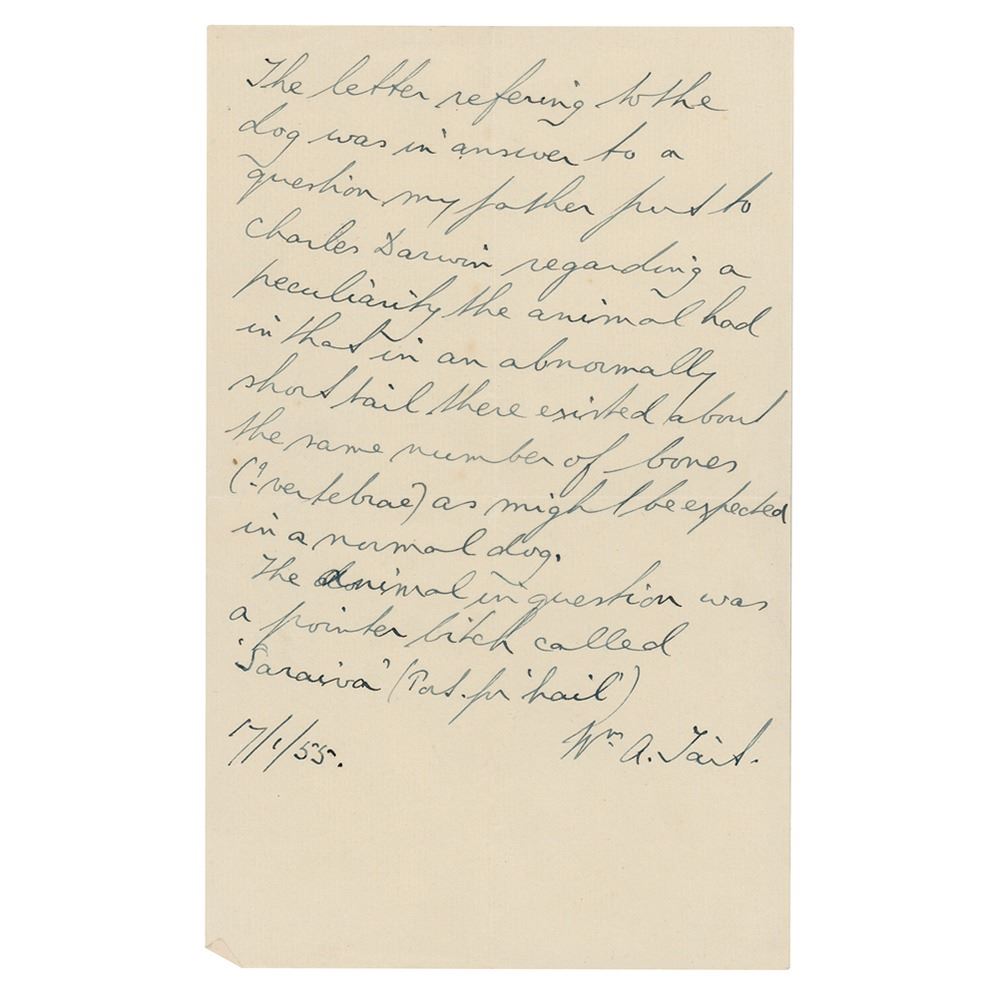 The letter refering to the
dog was in answer to a
question my father put to
Charles Darwin regarding a
peculiarity the animal had
in that in an abnormally
short tail there existed about
the same number of bones
(? vertebrae) as might be expected
in a normal dog.
The animal in question was
a pointer bitch called
'Saraiva' (Port. for 'hail')
17/1/55.
Wm. A. Tait.